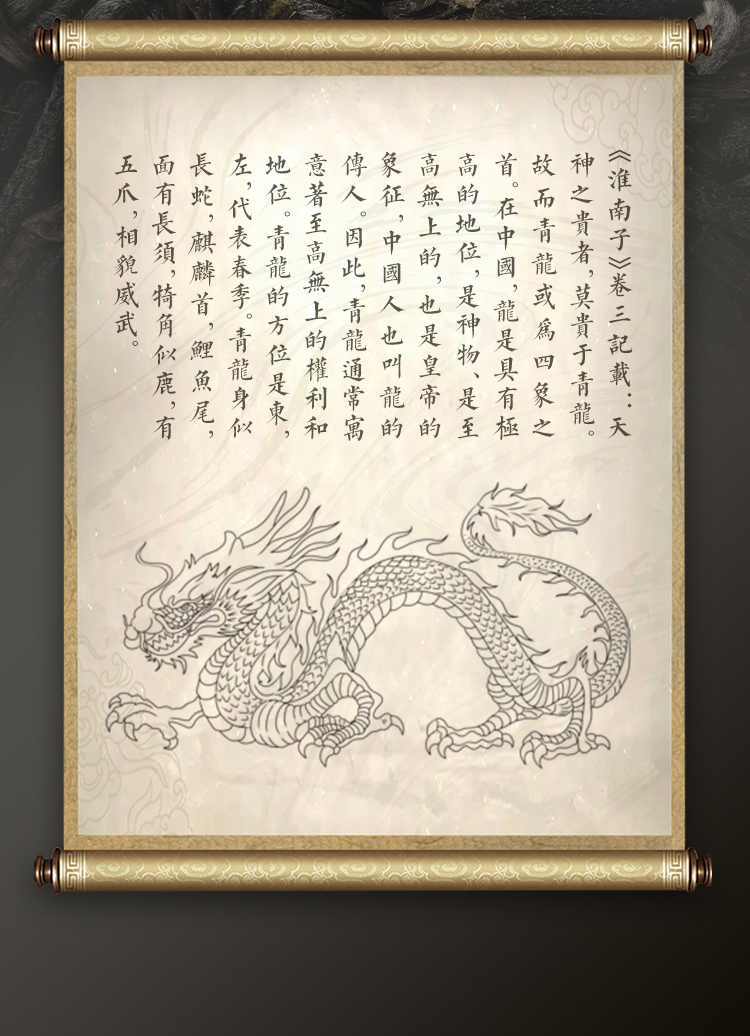 《淮南子》卷三記載：天
神之貴者，莫貴于青龍。
故而青龍或爲四象之
首。在中國，龍是具有極
高的地位，是神物、是至
高無上的，也是皇帝的
象征，中國人也叫龍的
傳人。因此，青龍通常寓
意著至高無上的權利和
地位。青龍的方位是東，
左，代表春季。青龍身似
長蛇，麒麟首，鯉魚尾，
面有長須，犄角似鹿，有
五爪，相貌威武。